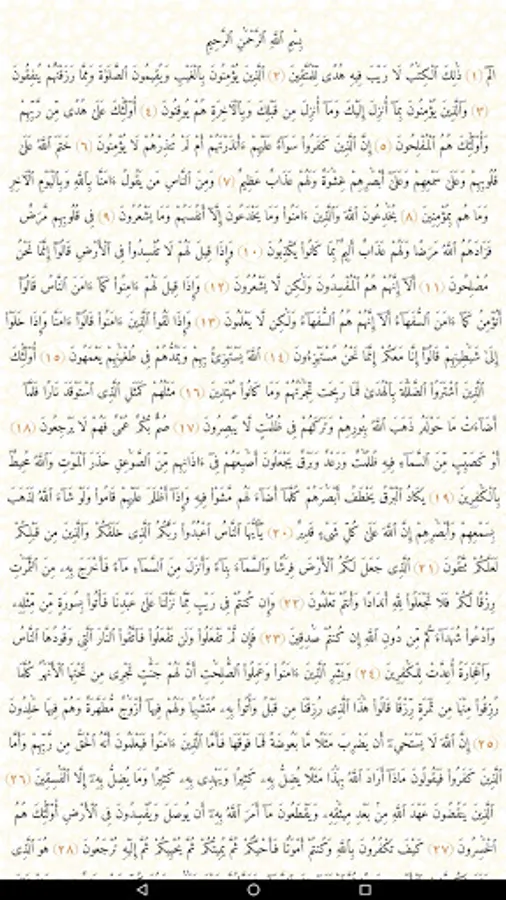 بِسْمِ ٱللَّهِ ٱلرَّحْمَٰنِ ٱلرَّحِيمِ
الٓمٓ ﴿١﴾ ذَٰلِكَ ٱلْكِتَٰبُ لَا رَيْبَ فِيهِ هُدًى لِّلْمُتَّقِينَ ﴿٢﴾ ٱلَّذِينَ يُؤْمِنُونَ بِٱلْغَيْبِ وَيُقِيمُونَ ٱلصَّلَوٰةَ وَمِمَّا رَزَقْنَٰهُمْ يُنفِقُونَ
﴿٣﴾ وَٱلَّذِينَ يُؤْمِنُونَ بِمَآ أُنزِلَ إِلَيْكَ وَمَآ أُنزِلَ مِن قَبْلِكَ وَبِٱلْءَاخِرَةِ هُمْ يُوقِنُونَ ﴿٤﴾ أُو۟لَٰٓئِكَ عَلَىٰ هُدًى مِّن رَّبِّهِمْ
وَأُو۟لَٰٓئِكَ هُمُ ٱلْمُفْلِحُونَ ﴿٥﴾ إِنَّ ٱلَّذِينَ كَفَرُوا۟ سَوَآءٌ عَلَيْهِمْ ءَأَنذَرْتَهُمْ أَمْ لَمْ تُنذِرْهُمْ لَا يُؤْمِنُونَ ﴿٦﴾ خَتَمَ ٱللَّهُ عَلَىٰ
قُلُوبِهِمْ وَعَلَىٰ سَمْعِهِمْ وَعَلَىٰٓ أَبْصَٰرِهِمْ غِشَٰوَةٌ وَلَهُمْ عَذَابٌ عَظِيمٌ ﴿٧﴾ وَمِنَ ٱلنَّاسِ مَن يَقُولُ ءَامَنَّا بِٱللَّهِ وَبِٱلْيَوْمِ ٱلْءَاخِرِ
وَمَا هُم بِمُؤْمِنِينَ ﴿٨﴾ يُخَٰدِعُونَ ٱللَّهَ وَٱلَّذِينَ ءَامَنُوا۟ وَمَا يَخْدَعُونَ إِلَّآ أَنفُسَهُمْ وَمَا يَشْعُرُونَ ﴿٩﴾ فِى قُلُوبِهِم مَّرَضٌ
فَزَادَهُمُ ٱللَّهُ مَرَضًا وَلَهُمْ عَذَابٌ أَلِيمٌۢ بِمَا كَانُوا۟ يَكْذِبُونَ ﴿١٠﴾ وَإِذَا قِيلَ لَهُمْ لَا تُفْسِدُوا۟ فِى ٱلْأَرْضِ قَالُوٓا۟ إِنَّمَا نَحْنُ
مُصْلِحُونَ ﴿١١﴾ أَلَآ إِنَّهُمْ هُمُ ٱلْمُفْسِدُونَ وَلَٰكِن لَّا يَشْعُرُونَ ﴿١٢﴾ وَإِذَا قِيلَ لَهُمْ ءَامِنُوا۟ كَمَآ ءَامَنَ ٱلنَّاسُ قَالُوٓا۟
أَنُؤْمِنُ كَمَآ ءَامَنَ ٱلسُّفَهَآءُ أَلَآ إِنَّهُمْ هُمُ ٱلسُّفَهَآءُ وَلَٰكِن لَّا يَعْلَمُونَ ﴿١٣﴾ وَإِذَا لَقُوا۟ ٱلَّذِينَ ءَامَنُوا۟ قَالُوٓا۟ ءَامَنَّا وَإِذَا خَلَوْا۟
إِلَىٰ شَيَٰطِينِهِمْ قَالُوٓا۟ إِنَّا مَعَكُمْ إِنَّمَا نَحْنُ مُسْتَهْزِءُونَ ﴿١٤﴾ ٱللَّهُ يَسْتَهْزِئُ بِهِمْ وَيَمُدُّهُمْ فِى طُغْيَٰنِهِمْ يَعْمَهُونَ ﴿١٥﴾ أُو۟لَٰٓئِكَ
ٱلَّذِينَ ٱشْتَرَوُا۟ ٱلضَّلَٰلَةَ بِٱلْهُدَىٰ فَمَا رَبِحَت تِّجَٰرَتُهُمْ وَمَا كَانُوا۟ مُهْتَدِينَ ﴿١٦﴾ مَثَلُهُمْ كَمَثَلِ ٱلَّذِى ٱسْتَوْقَدَ نَارًا فَلَمَّآ
أَضَآءَتْ مَا حَوْلَهُۥ ذَهَبَ ٱللَّهُ بِنُورِهِمْ وَتَرَكَهُمْ فِى ظُلُمَٰتٍ لَّا يُبْصِرُونَ ﴿١٧﴾ صُمٌّۢ بُكْمٌ عُمْىٌ فَهُمْ لَا يَرْجِعُونَ ﴿١٨﴾
أَوْ كَصَيِّبٍ مِّنَ ٱلسَّمَآءِ فِيهِ ظُلُمَٰتٌ وَرَعْدٌ وَبَرْقٌ يَجْعَلُونَ أَصَٰبِعَهُمْ فِىٓ ءَاذَانِهِم مِّنَ ٱلصَّوَٰعِقِ حَذَرَ ٱلْمَوْتِ وَٱللَّهُ مُحِيطٌۢ
بِٱلْكَٰفِرِينَ ﴿١٩﴾ يَكَادُ ٱلْبَرْقُ يَخْطَفُ أَبْصَٰرَهُمْ كُلَّمَآ أَضَآءَ لَهُم مَّشَوْا۟ فِيهِ وَإِذَآ أَظْلَمَ عَلَيْهِمْ قَامُوا۟ وَلَوْ شَآءَ ٱللَّهُ لَذَهَبَ
بِسَمْعِهِمْ وَأَبْصَٰرِهِمْ إِنَّ ٱللَّهَ عَلَىٰ كُلِّ شَىْءٍ قَدِيرٌ ﴿٢٠﴾ يَٰٓأَيُّهَا ٱلنَّاسُ ٱعْبُدُوا۟ رَبَّكُمُ ٱلَّذِى خَلَقَكُمْ وَٱلَّذِينَ مِن قَبْلِكُمْ
لَعَلَّكُمْ تَتَّقُونَ ﴿٢١﴾ ٱلَّذِى جَعَلَ لَكُمُ ٱلْأَرْضَ فِرَٰشًا وَٱلسَّمَآءَ بِنَآءً وَأَنزَلَ مِنَ ٱلسَّمَآءِ مَآءً فَأَخْرَجَ بِهِۦ مِنَ ٱلثَّمَرَٰتِ
رِزْقًا لَّكُمْ فَلَا تَجْعَلُوا۟ لِلَّهِ أَندَادًا وَأَنتُمْ تَعْلَمُونَ ﴿٢٢﴾ وَإِن كُنتُمْ فِى رَيْبٍ مِّمَّا نَزَّلْنَا عَلَىٰ عَبْدِنَا فَأْتُوا۟ بِسُورَةٍ مِّن مِّثْلِهِۦ
وَٱدْعُوا۟ شُهَدَآءَكُم مِّن دُونِ ٱللَّهِ إِن كُنتُمْ صَٰدِقِينَ ﴿٢٣﴾ فَإِن لَّمْ تَفْعَلُوا۟ وَلَن تَفْعَلُوا۟ فَٱتَّقُوا۟ ٱلنَّارَ ٱلَّتِى وَقُودُهَا ٱلنَّاسُ
وَٱلْحِجَارَةُ أُعِدَّتْ لِلْكَٰفِرِينَ ﴿٢٤﴾ وَبَشِّرِ ٱلَّذِينَ ءَامَنُوا۟ وَعَمِلُوا۟ ٱلصَّٰلِحَٰتِ أَنَّ لَهُمْ جَنَّٰتٍ تَجْرِى مِن تَحْتِهَا ٱلْأَنْهَٰرُ كُلَّمَا
رُزِقُوا۟ مِنْهَا مِن ثَمَرَةٍ رِّزْقًا قَالُوا۟ هَٰذَا ٱلَّذِى رُزِقْنَا مِن قَبْلُ وَأُتُوا۟ بِهِۦ مُتَشَٰبِهًا وَلَهُمْ فِيهَآ أَزْوَٰجٌ مُّطَهَّرَةٌ وَهُمْ فِيهَا خَٰلِدُونَ
﴿٢٥﴾ إِنَّ ٱللَّهَ لَا يَسْتَحْىِۦٓ أَن يَضْرِبَ مَثَلًا مَّا بَعُوضَةً فَمَا فَوْقَهَا فَأَمَّا ٱلَّذِينَ ءَامَنُوا۟ فَيَعْلَمُونَ أَنَّهُ ٱلْحَقُّ مِن رَّبِّهِمْ وَأَمَّا
ٱلَّذِينَ كَفَرُوا۟ فَيَقُولُونَ مَاذَآ أَرَادَ ٱللَّهُ بِهَٰذَا مَثَلًا يُضِلُّ بِهِۦ كَثِيرًا وَيَهْدِى بِهِۦ كَثِيرًا وَمَا يُضِلُّ بِهِۦٓ إِلَّا ٱلْفَٰسِقِينَ ﴿٢٦﴾
ٱلَّذِينَ يَنقُضُونَ عَهْدَ ٱللَّهِ مِنۢ بَعْدِ مِيثَٰقِهِۦ وَيَقْطَعُونَ مَآ أَمَرَ ٱللَّهُ بِهِۦٓ أَن يُوصَلَ وَيُفْسِدُونَ فِى ٱلْأَرْضِ أُو۟لَٰٓئِكَ هُمُ
ٱلْخَٰسِرُونَ ﴿٢٧﴾ كَيْفَ تَكْفُرُونَ بِٱللَّهِ وَكُنتُمْ أَمْوَٰتًا فَأَحْيَٰكُمْ ثُمَّ يُمِيتُكُمْ ثُمَّ يُحْيِيكُمْ ثُمَّ إِلَيْهِ تُرْجَعُونَ ﴿٢٨﴾ هُوَ ٱلَّذِى